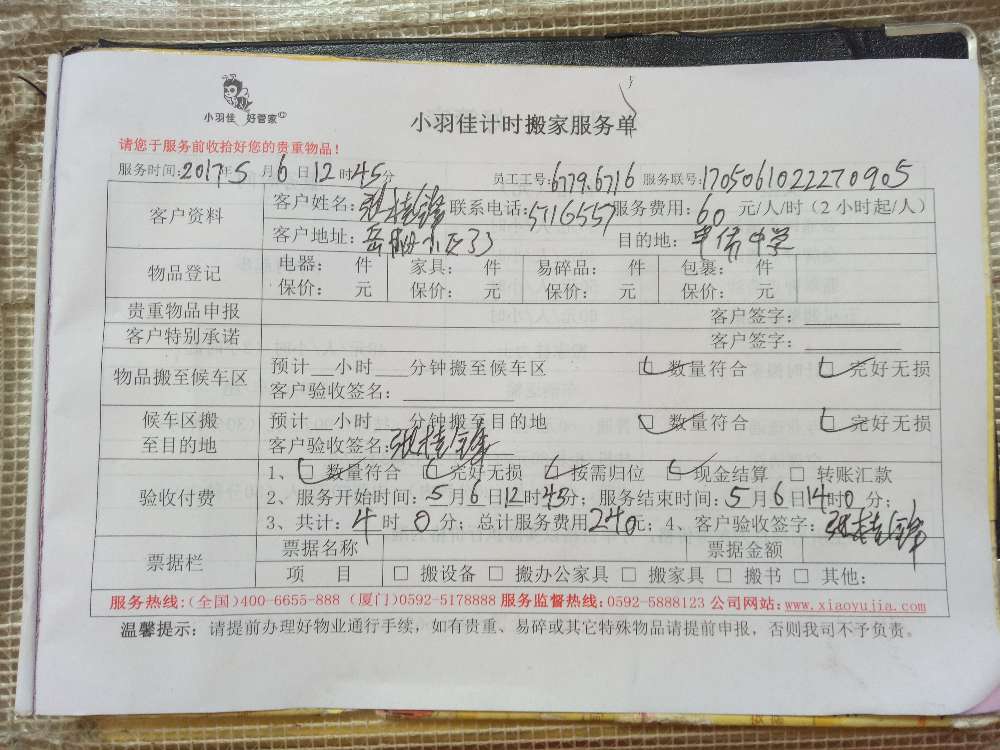 小羽佳 好管家
小羽佳计时搬家服务单
请您于服务前收拾好您的贵重物品!
服务时间:2017年5月6日12时45分 员工工号:6779.6716 服务联号:1705061022270905
客户资料 客户姓名:张桂锋 联系电话:5716557 服务费用:60元/人/时(2小时起/人)
客户地址:岳阳小区33 目的地:华侨中学
物品登记 电器: 件 家具: 件 易碎品: 件 包裹: 件
保价: 元 保价: 元 保价: 元 保价: 元
贵重物品申报 客户签字:
客户特别承诺 客户签字:
物品搬至候车区 预计__小时___分钟搬至候车区 □ 数量符合 □ 完好无损
客户验收签名:
候车区搬至目的地 预计__小时___分钟搬至目的地 □ 数量符合 □ 完好无损
客户验收签名:张桂锋
验收付费 1、□ 数量符合 □ 完好无损 □ 按需归位 □ 现金结算 □ 转账汇款
2、服务开始时间:5月6日12时45分;服务结束时间:5月6日14时0分;
3、共计:4时0分;总计服务费用240元;4、客户验收签字:张桂锋
票据栏 票据名称 票据金额
项 目 □ 搬设备 □ 搬办公家具 □ 搬家具 □ 搬书 □ 其他:
服务热线:(全国)400-6655-888 (厦门)0592-5178888 服务监督热线:0592-5888123 公司网站:www.xiaoyujia.com
温馨提示:请提前办理好物业通行手续,如有贵重、易碎或其它特殊物品请提前申报,否则我司不予负责。